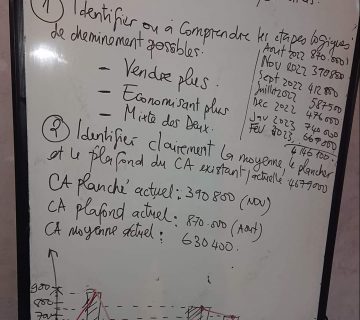 ① Identifier ou à comprendre les étapes logiques
de cheminement possibles.
- Vendre plus.
- Economisant plus
- Mixte des Deux.
Août 2022 870 000
Nov 2022 390 800
Sept 2022 412 000
Juillet 2022 587 500
Dec 2022 476 000
Jav 2023 740 000
Fev 2023 669 000
② Identifier clairement la moyenne, le plancher
et le plafond du CA existant/actuelle
CA planché actuel : 390 800 (NOV)
CA plafond actuel : 870.000 (Aout)
CA moyenne actuel : 630 400.
900
800
700